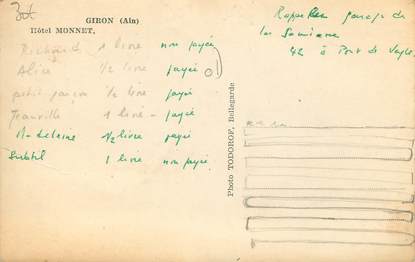 30f
GIRON (Ain)
Hôtel MONNET,
Richard 1 livre non payé
Alice 1/2 livre payé
petit garçon 1/2 livre payé
1 livre - payé
Madeleine 1/2 livre payé
Subtil 1 livre non payé
Photo TODOROF, Bellegarde
garage de
la Semaine
42 à Pont de